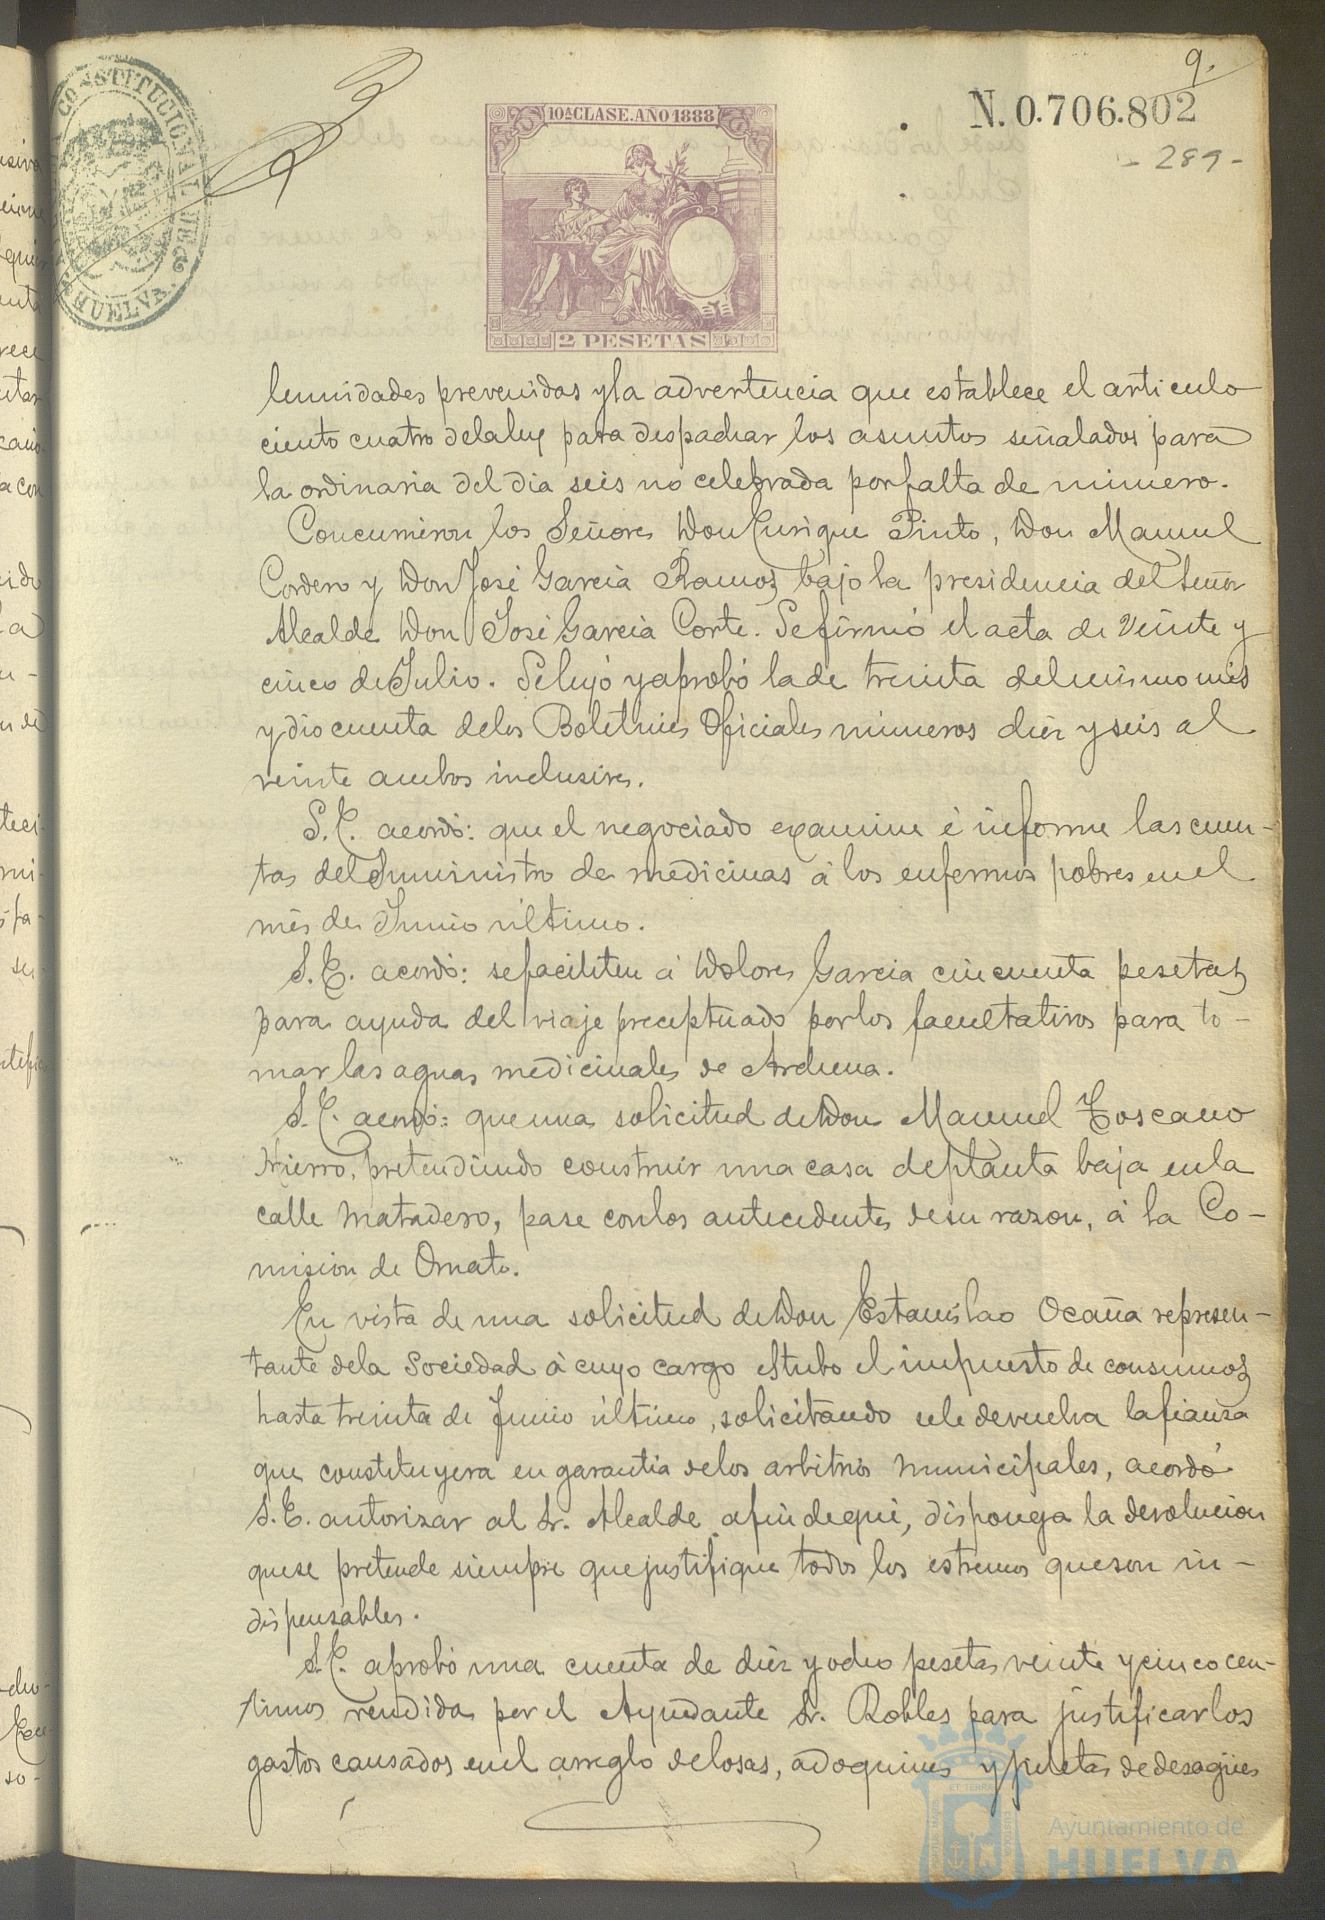 9.
N. 0.706.802
- 289 -
CONSTITUCIONAL DE
HUELVA.
10ª CLASE. AÑO 1888
2 PESETAS
lemnidades prevenidas y la advertencia que establece el articulo
ciento cuatro de la ley para despachar los asuntos señalados para
la ordinaria del dia seis no celebrada por falta de número.
Concurrieron los Señores Don Enrique Pinto, Don Manuel
Cordero y Don José Garcia Ramos bajo la presidencia del Señor
Alcalde Don José Garcia Corte. Se firmó el acta de Veinte y
cinco de Julio. Se leyó y aprobó la de treinta del mismo més
y dio cuenta de los Boletines Oficiales números diez y seis al
veinte ambos inclusives.
S.E. acordó: que el negociado examine é informe las cuen-
tas del Suministro de medicinas á los enfermos pobres en el
més de Junio último.
S.E. acordó: se faciliten á Dolores Garcia cincuenta pesetas
para ayuda del viaje preceptuado por los facultativos para to-
mar las aguas medicinales de Archena.
S.E. acordó: que una solicitud de Don Manuel Toscano
Hierro, pretendiendo construir una casa de planta baja en la
calle Matadero, pase con los antecedentes de su razon, á la Co-
mision de Ornato.
En vista de una solicitud de Don Estanislao Ocaña represen-
tante de la Sociedad á cuyo cargo estubo el impuesto de consumos
hasta treinta de Junio último, solicitando se le devuelva la fianza
que constituyera en garantia de los arbitrios municipales, acordó
S.E. autorizar al Sr. Alcalde afin de que, disponga la devolucion
que se pretende siempre que justifique todos los estremos que son in-
dispensables.
S.E. aprobó una cuenta de diez y ocho pesetas veinte y cinco cen-
timos rendida por el Ayudante Sr. Robles para justificar los
gastos causados en el arreglo de losas, adoquines y piletas de desagües
Ayuntamiento de
HUELVA